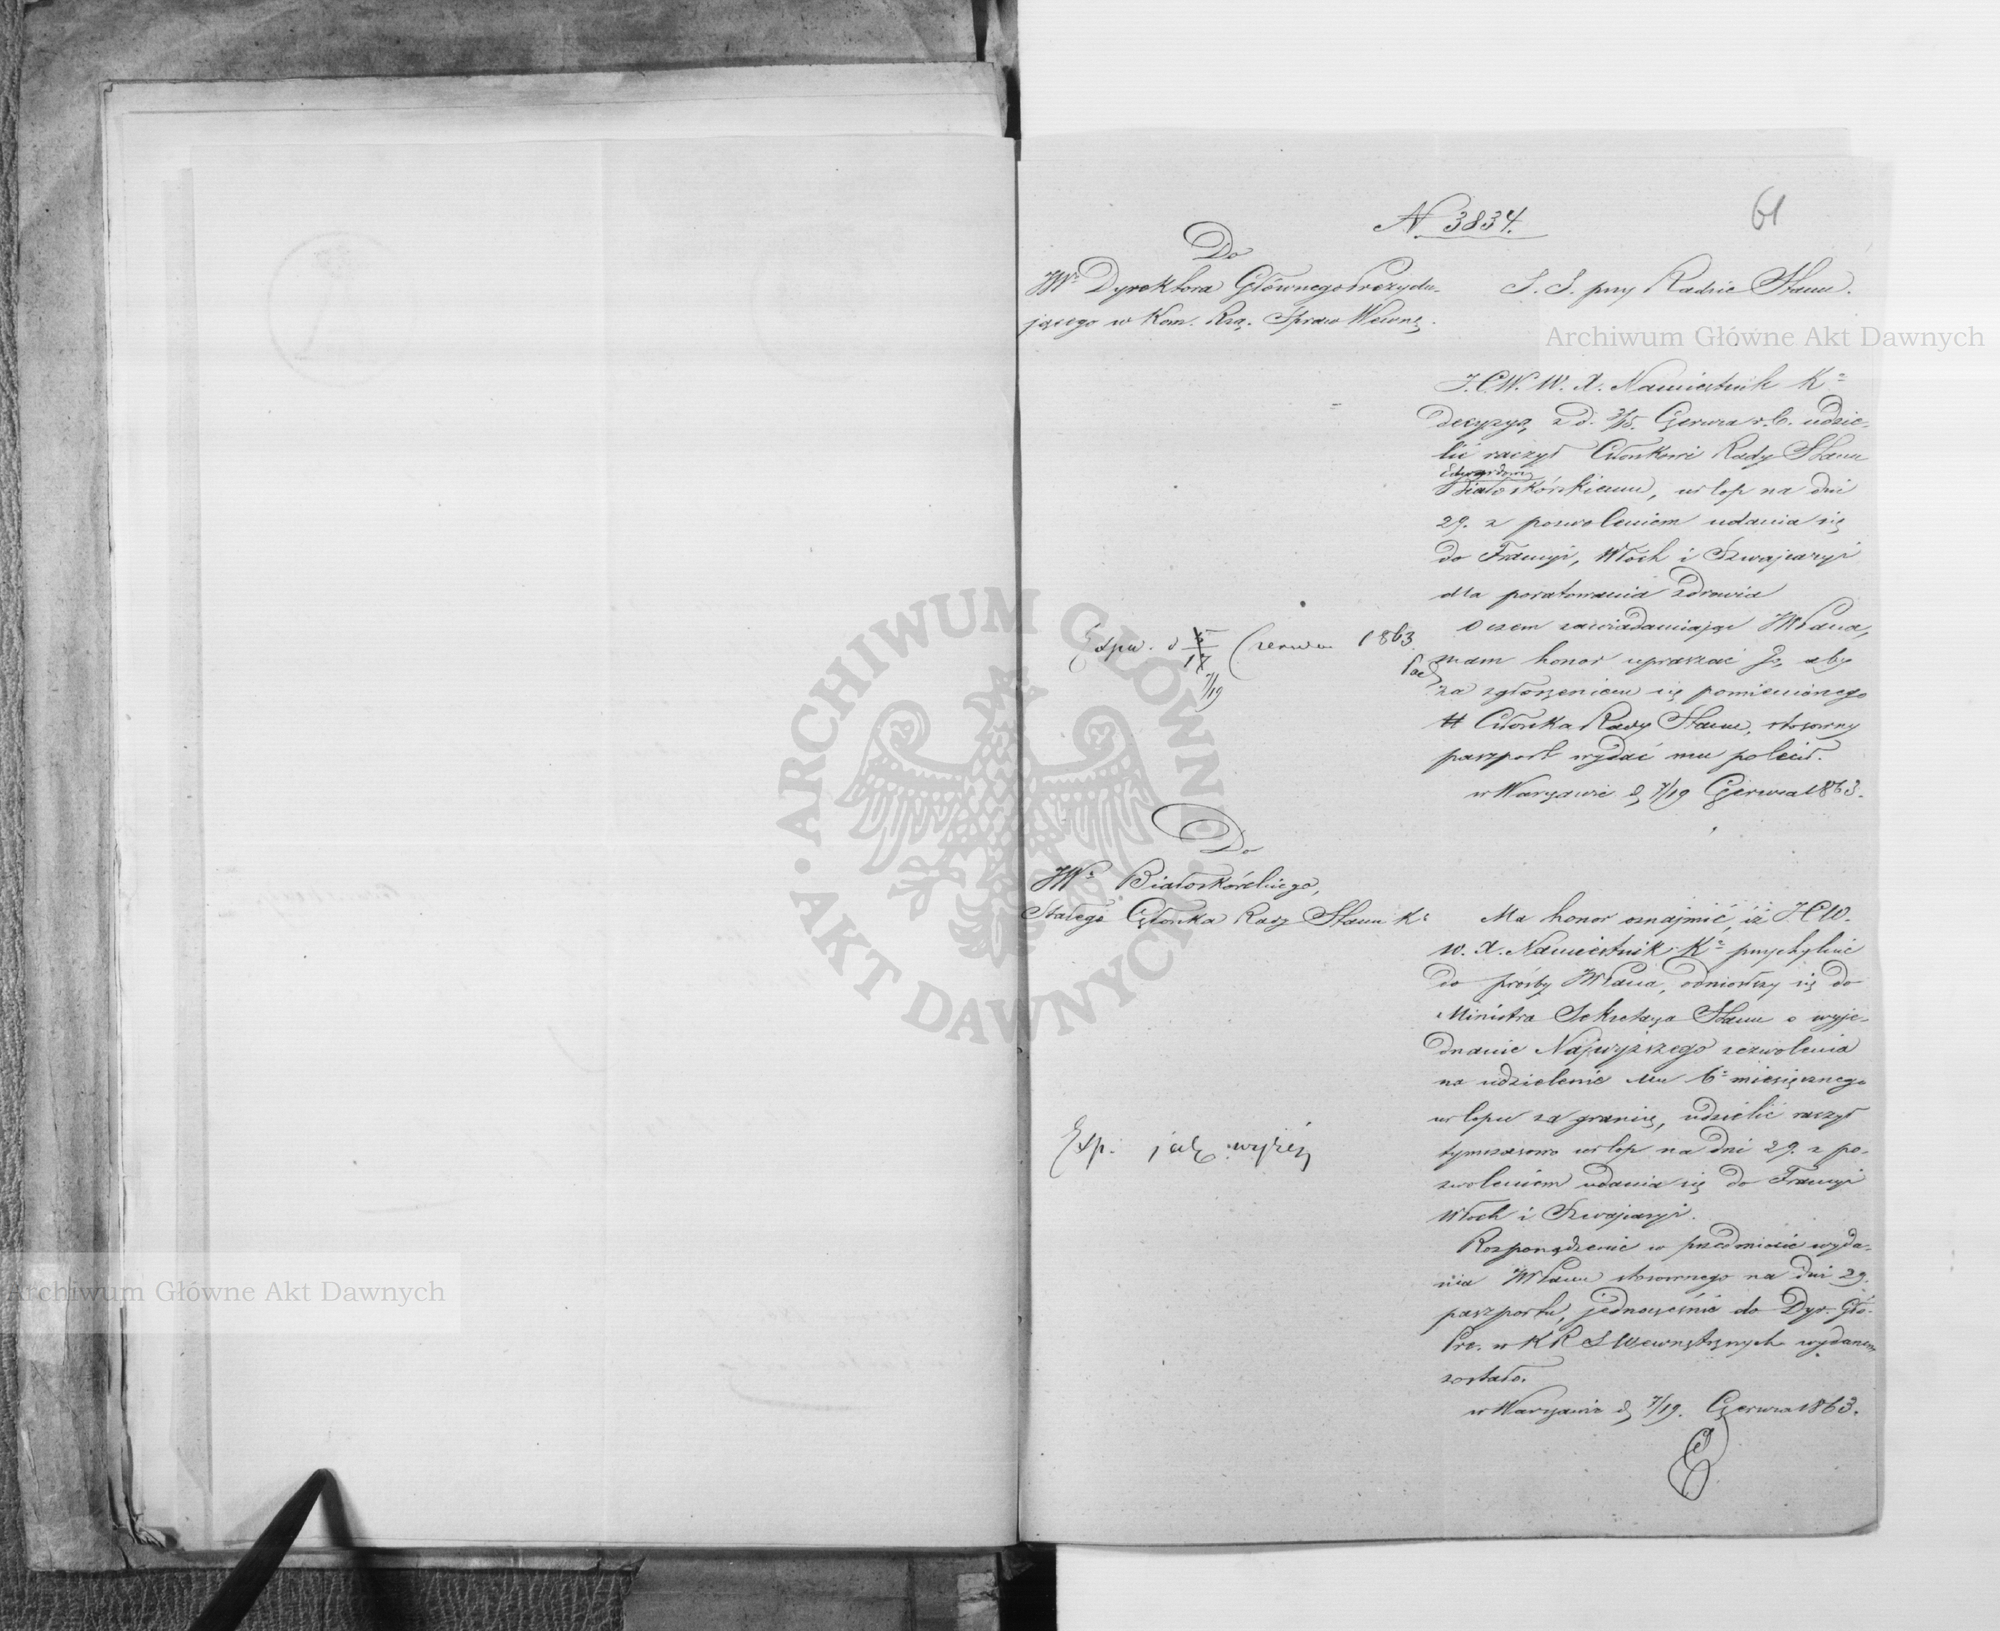 N. 3834.
61
Do
JW. Dyrektora Głównego Prezydu-
jącego w Kom. Rzą. Spraw Wewnę.
S. S. przy Radzie Stanu.
J. C. W. W. X. Namiestnik K.
decyzyą z d. 3/15. Czerwca r. b. udzie-
lić raczył Członkowi Rady Stanu
Edwardowi
Białoskórskiemu, urlop na dni
29. z pozwoleniem udania się
do Francyi, Włoch i Szwajcaryi
dla poratowania zdrowia
O czem zawiadamiając JWPana,
mam honor upraszać Go, aby
za zgłoszeniem się pomienionego
Członka Rady Stanu, stosowny
paszport wydać mu polecił.
w Warszawie d. 7/19 Czerwca 1863.
Exp. d 5/17 Czerwca 1863.
7/19
Do
JW. Białoskórskiego,
Stałego Członka Rady Stanu K.
Ma honor oznajmić, iż J C W.
W. X. Namiestnik K. przychylnie
do prośby JWPana, odniosłszy się do
Ministra Sekretarza Stanu o wyje-
dnanie Najwyższego zezwolenia
na udzielenie Mu 6. miesięcznego
urlopu za granicę, udzielić raczył
tymczasowo urlop na dni 29. z po-
zwoleniem udania się do Francyi
Włoch i Szwajcaryi.
Rozporządzenie w przedmiocie wyda-
nia JWPanu stosownego na dni 29.
paszportu, jednocześnie do Dyr. Głó.
Prez. w K R S Wewnętrznych wydanem
zostało.
w Warszawie d. 7/19. Czerwca 1863.
Exp. jak wyżej
Archiwum Główne Akt Dawnych
Archiwum Główne Akt Dawnych
ARCHIWUM GŁÓWNE · AKT DAWNYCH ·